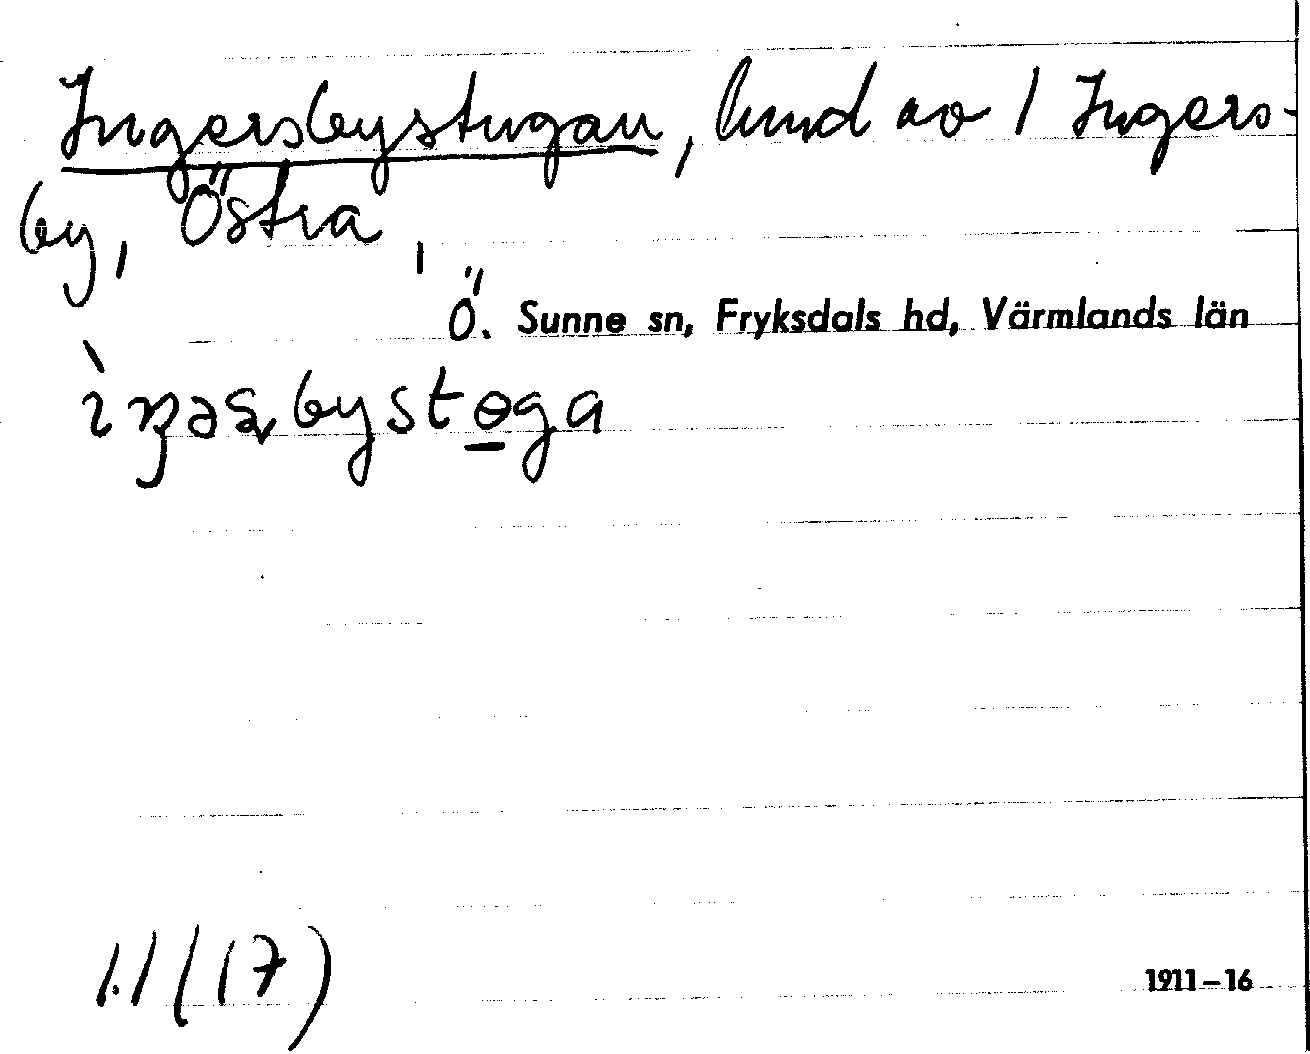 Ingersbystugan, lund av 1 Ingers-
by, Östra,
Ö. Sunne sn, Fryksdals hd, Värmlands län
1.1 (17)
1911–16